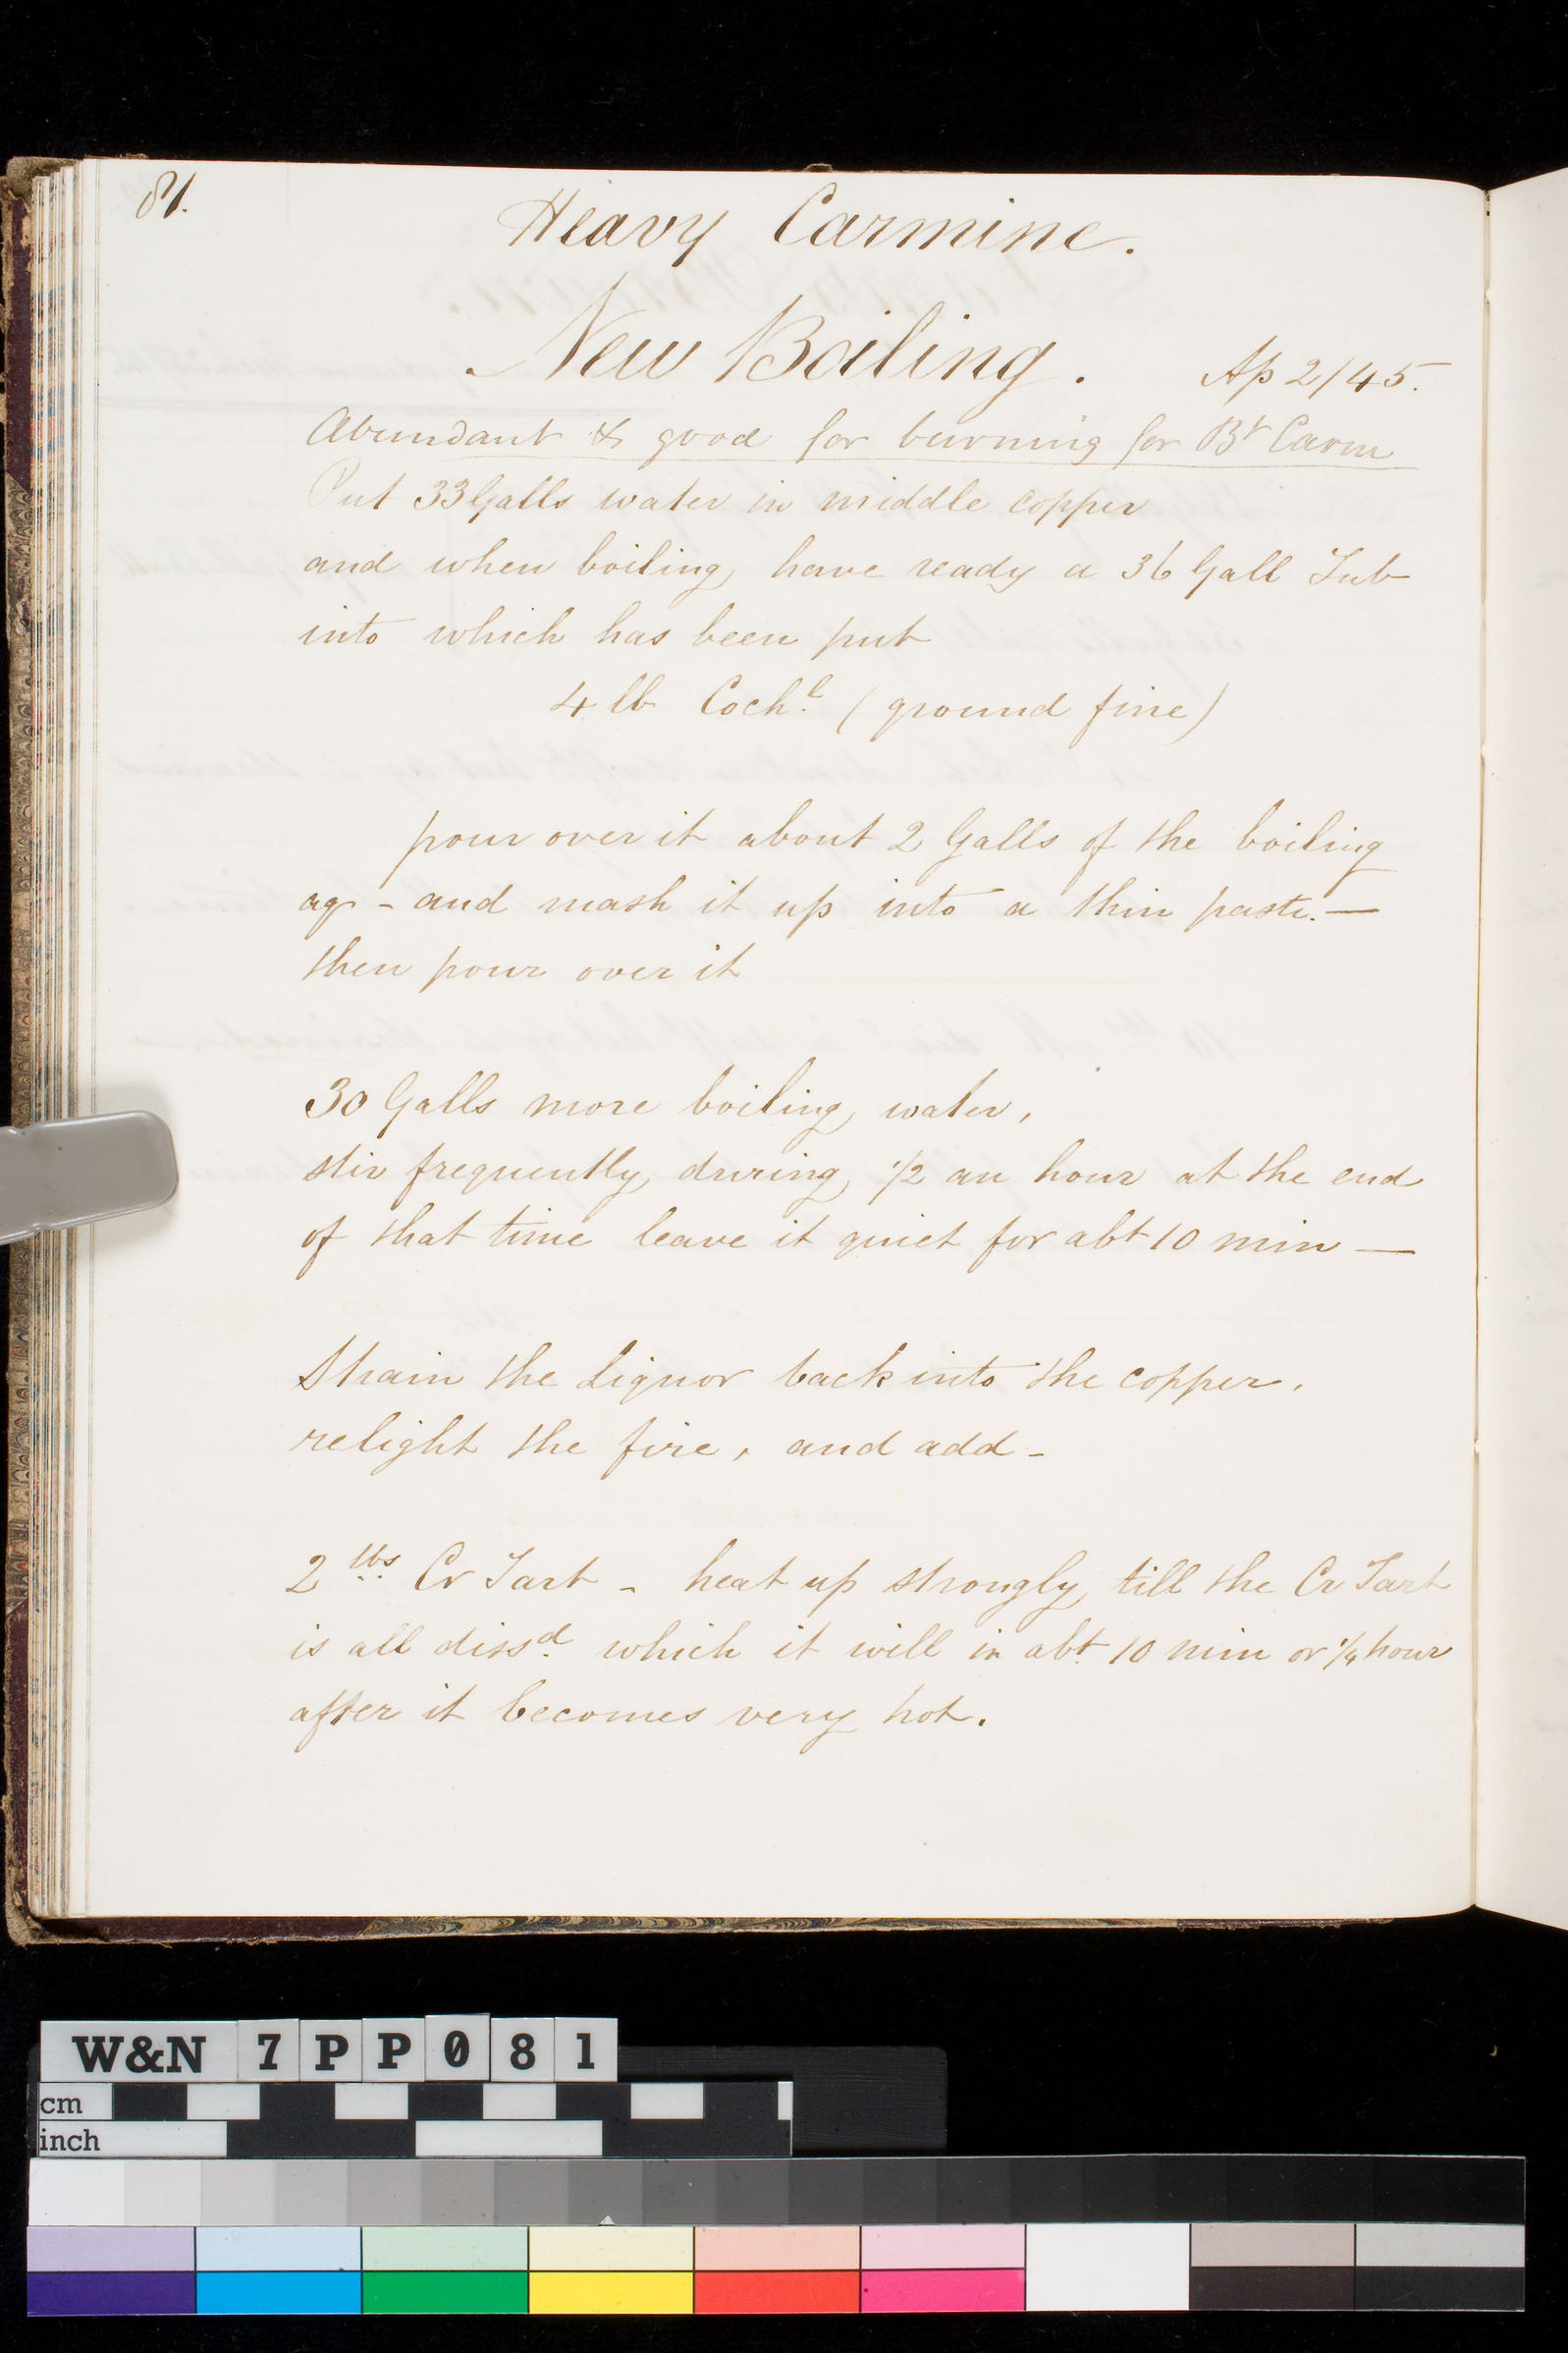 81.
Heavy Carmine.
New Boiling.
Ap 2/45.
Abundant & good for burning for Bt Carm
Put 33 Galls water in middle copper
and when boiling, have ready a 36 Gall Tub
into which has been put
4 lb Coch.l (ground fine)
pour over it about 2 Galls of the boiling
aq - and mash it up into a thin paste. —
then pour over it
30 Galls more boiling water,
stir frequently, during, 1/2 an hour at the end
of that time leave it quiet for abt 10 min —
Strain the Liquor back into the copper,
relight the fire, and add -
2 lbs Cr Tart - heat up strongly, till the Cr Tart
is all dissd. which it will in abt. 10 min or 1/4 hour
after it becomes very hot.
W&N 7PP081
cm
inch